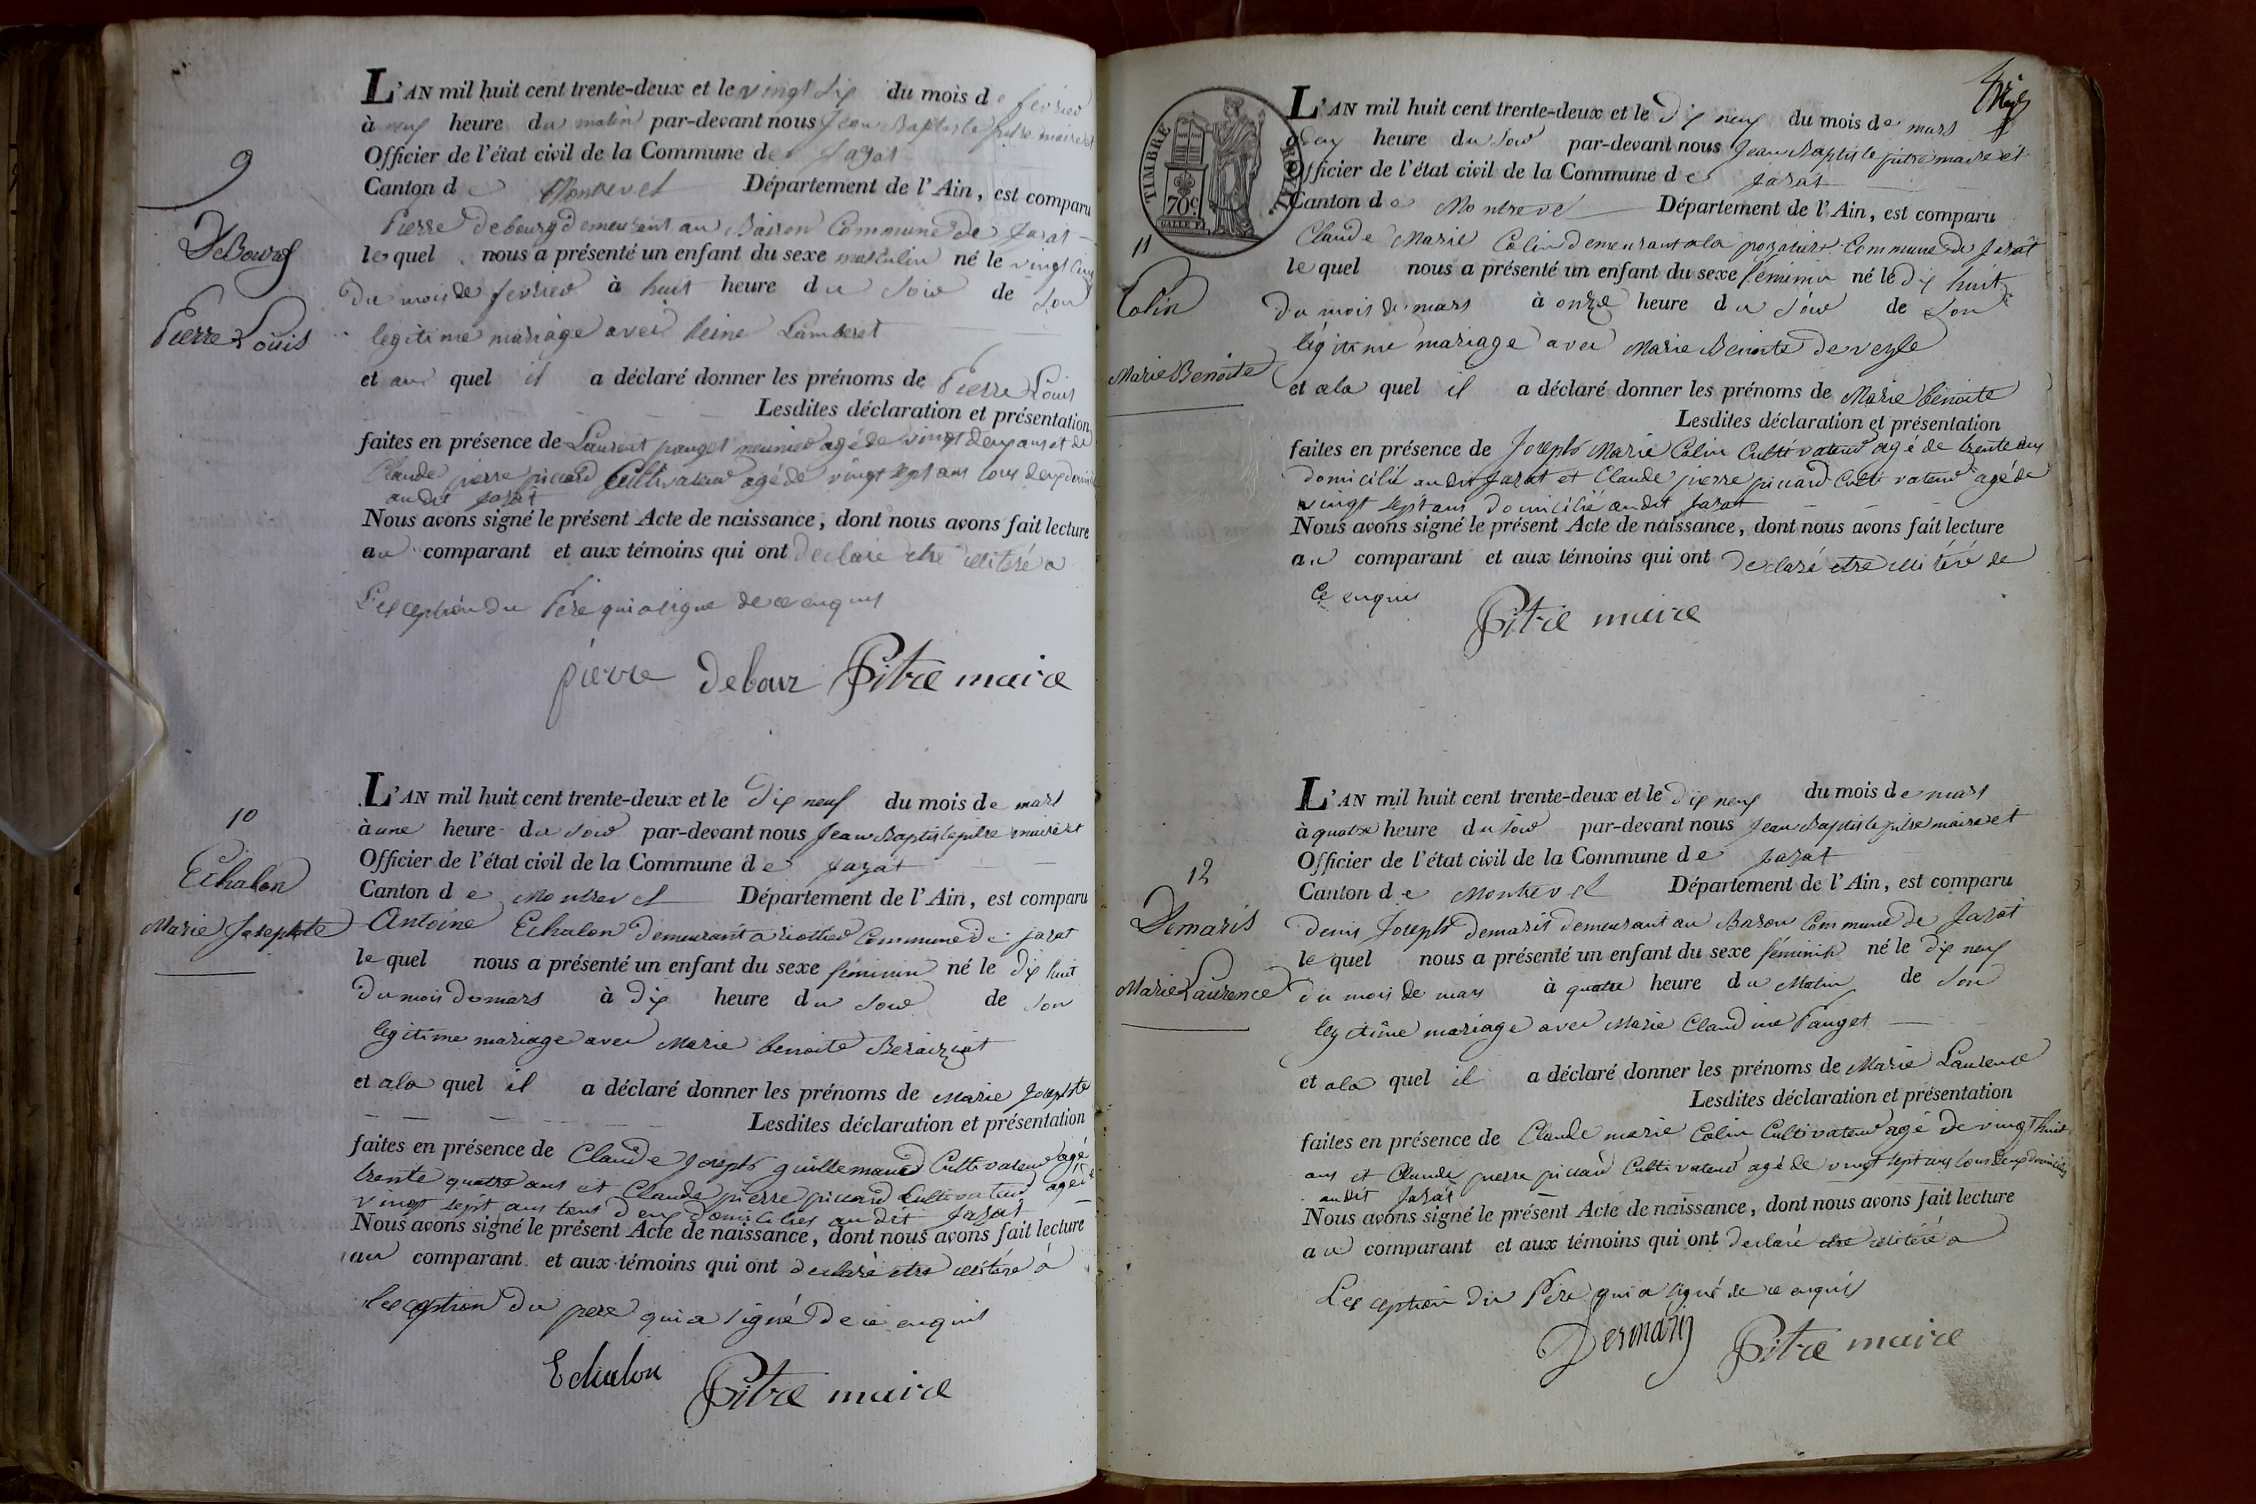 9
DeBourg
Pierre Louis
L'AN mil huit cent trente-deux et le vingt six du mois de fevrier
à neuf heure du matin par-devant nous Jean Baptiste pitre maire et
Officier de l'état civil de la Commune de Jayat
Canton de Montrevel Département de l'Ain, est comparu
Pierre debourg demeurant au Baison Commune de Jayat
lequel nous a présenté un enfant du sexe masculin né le vingt cinq
du mois de fevrier à huit heure du soir de son
legitime mariage avec Reine Lamberet
et au quel il a déclaré donner les prénoms de Pierre Louis
Lesdites déclaration et présentation
faites en présence de Laurent pauget meunier agé de vingt deux ans et de
Claude pierre piccard Cultivateur agé de vingt sept ans tous deux
au dit Jayat
Nous avons signé le présent Acte de naissance, dont nous avons fait lecture
au comparant et aux témoins qui ont declaré etre illitéré a
L'exception du Père qui a signé de ce enquis
pierre debour Pitre maire
10
Echalon
Marie Josephte
L'AN mil huit cent trente-deux et le dix neuf du mois de mars
à une heure du soir par-devant nous Jean Baptiste pitre maire et
Officier de l'état civil de la Commune de Jayat
Canton de Montrevel Département de l'Ain, est comparu
Antoine Echalon demeurant a Commune de jayat
lequel nous a présenté un enfant du sexe féminin né le dix huit
du mois de mars à dix heure du soir de son
legitime mariage avec Marie benoite
et a la quel il a déclaré donner les prénoms de Marie Josephte
Lesdites déclaration et présentation
faites en présence de Claude Joseph Cultivateur agé
trente quatre ans et Claude pierre piccard Cultivateur agé de
vingt sept ans tous deux domiciliés au dit Jayat
Nous avons signé le présent Acte de naissance, dont nous avons fait lecture
au comparant et aux témoins qui ont declaré etre illitéré à
l'exception du pere qui a signé de ce enquis
Echalon Pitre maire
TIMBRE ROYAL
70c
11
Colin
Marie Benoite
L'AN mil huit cent trente-deux et le dix neuf du mois de mars
à deux heure du soir par-devant nous Jean Baptiste pitre maire et
Officier de l'état civil de la Commune de Jayat
Canton de Montrevel Département de l'Ain, est comparu
Claude Marie Colin demeurant a la Commune de Jayat
lequel nous a présenté un enfant du sexe féminin né le dix huit
du mois de mars à onze heure du soir de son
légitime mariage avec Marie Benoite deveyle
et a la quel il a déclaré donner les prénoms de Marie benoite
Lesdites déclaration et présentation
faites en présence de Joseph Marie Colin Cultivateur agé de trente ans
domicilié au dit Jayat et Claude pierre piccard Cultivateur agé de
vingt sept ans domicilié au dit Jayat
Nous avons signé le présent Acte de naissance, dont nous avons fait lecture
au comparant et aux témoins qui ont declaré etre illitéré de
ce enquis
Pitre maire
12
Demaris
Marie Laurence
L'AN mil huit cent trente-deux et le dix neuf du mois de mars
à quatre heure du soir par-devant nous Jean Baptiste pitre maire et
Officier de l'état civil de la Commune de Jayat
Canton de Montrevel Département de l'Ain, est comparu
denis Joseph demaris demeurant au Baison Commune de Jayat
lequel nous a présenté un enfant du sexe féminin né le dix neuf
du mois de mars à quatre heure du Matin de son
legitime mariage avec Marie Claudine Pauget
et a la quel il a déclaré donner les prénoms de Marie Laurence
Lesdites déclaration et présentation
faites en présence de Claude marie Colin Cultivateur agé de vingt huit
ans et Claude pierre piccard Cultivateur agé de vingt sept ans tous deux domiciliés
au dit Jayat
Nous avons signé le présent Acte de naissance, dont nous avons fait lecture
au comparant et aux témoins qui ont declaré etre illitéré a
L'exception du Père qui a signé de ce enquis
Demaris Pitre maire